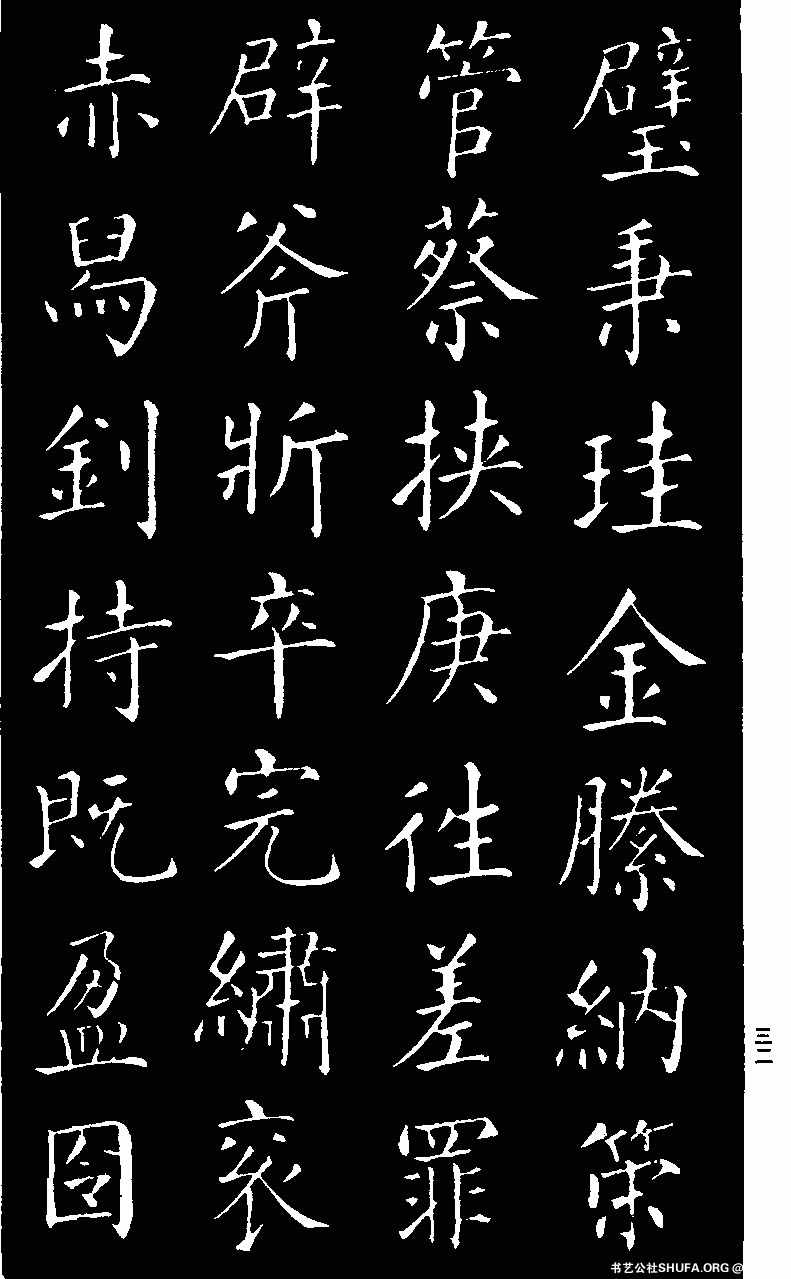 璧秉珪金縢納策
管蔡挟庚徃差罪
辟斧斨卒完繡衮
赤舄釗持既盈囹
三二
书艺公社SHUFA.ORG @